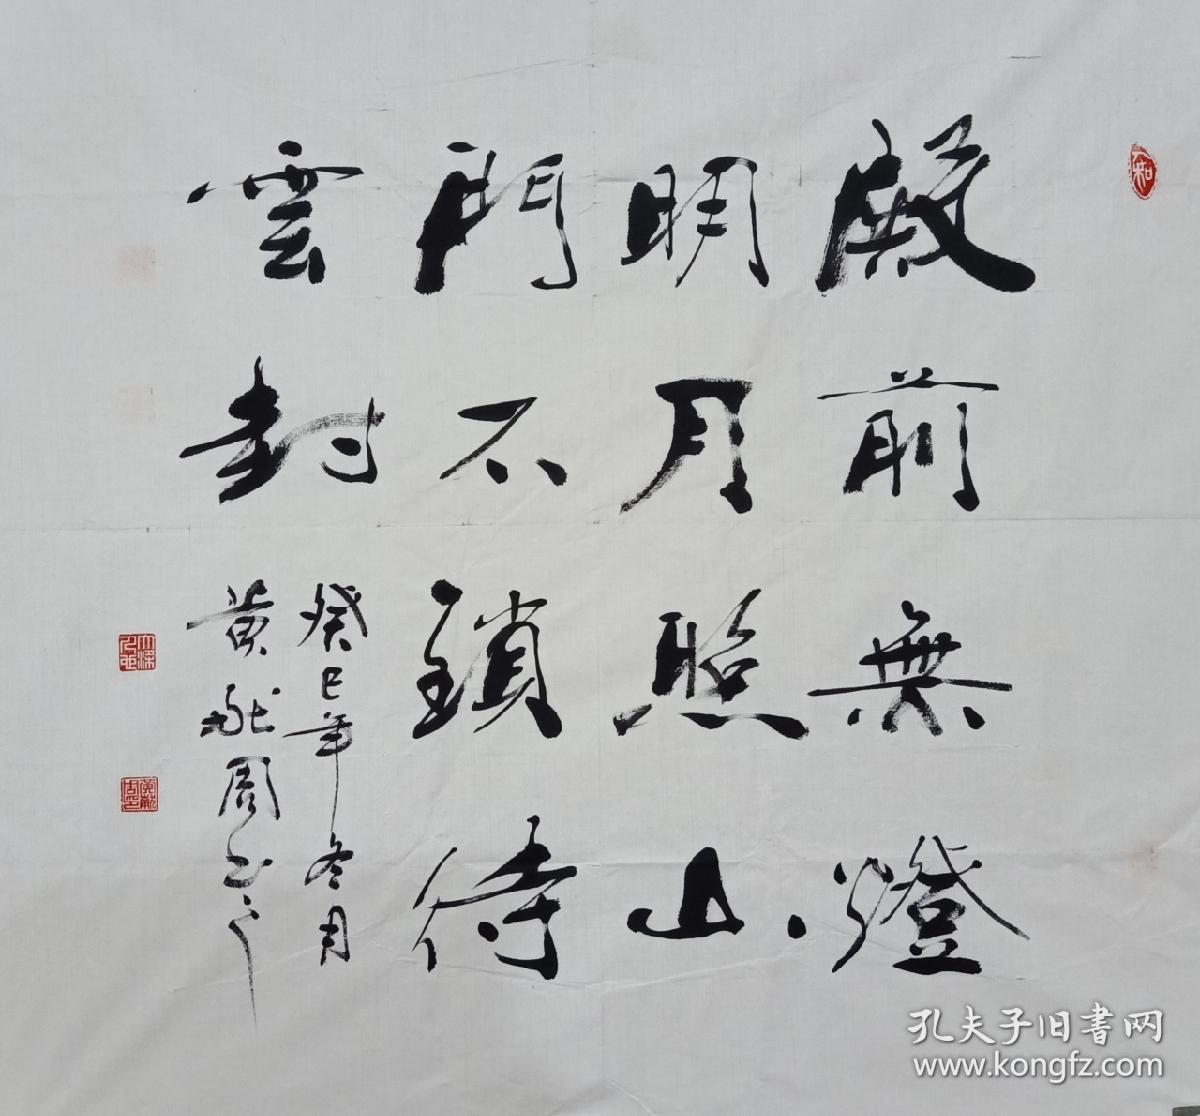 殿前無燈
明月照山
門不鎖待
雲封
癸巳年冬月
黄献周书
孔夫子旧书网
www.kongfz.com